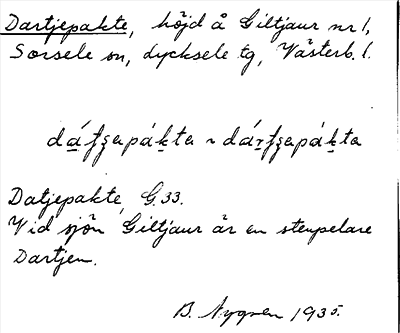 Dartjepakte, höjd å Giltjaur nr 1,
Sorsele sn, Lycksele tg, Västerb. l.
Datjepakte, G.33.
Vid sjön Giltjaur är en stenpelare
Dartjen.
B. Nygren 1935.